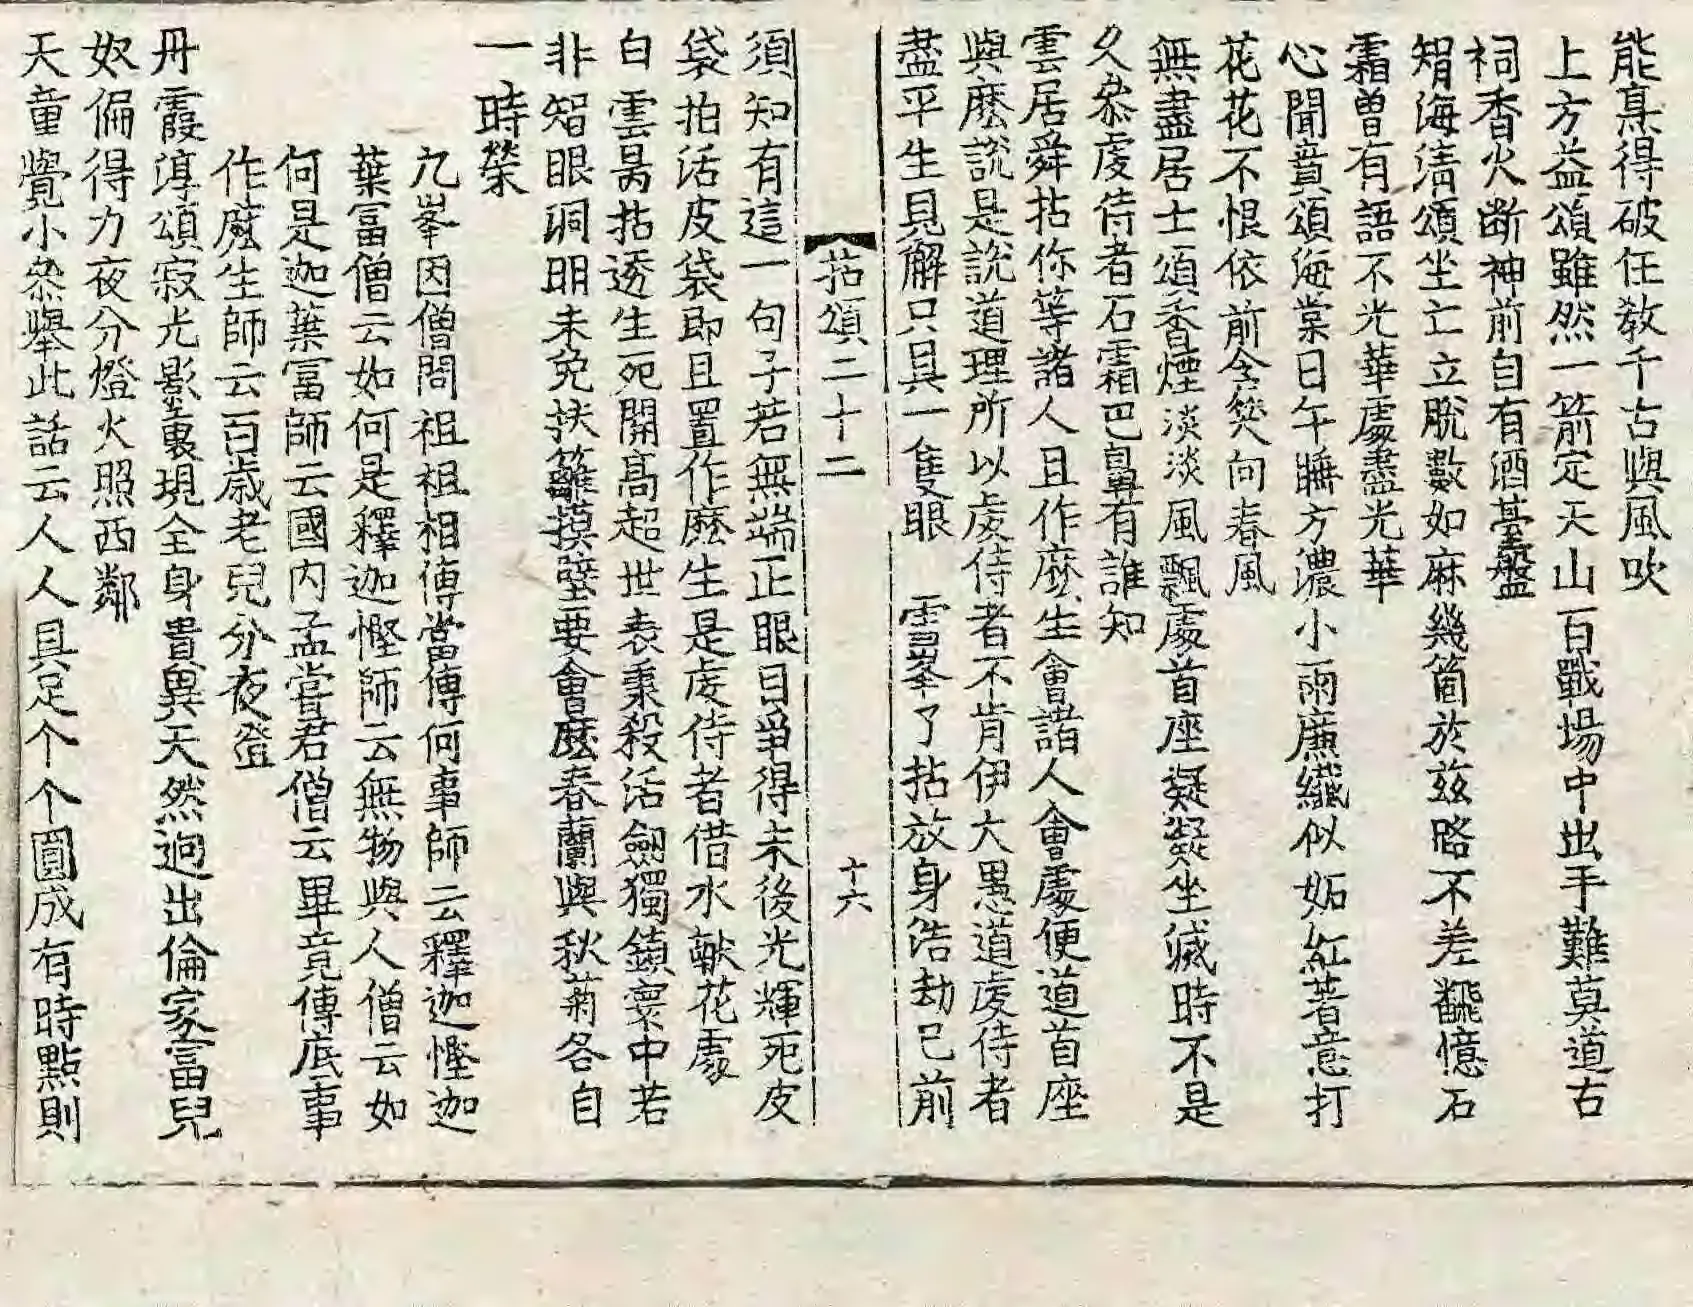 能烹得破任教千古與風吹
上方益頌雖然一箭定天山百戰場中出手難莫道右
祠香火断神前自有酒臺盤
智海清頌坐亡立脫數如麻幾箇於兹路不差飜憶石
霜曽有語不光華處盡光華
心聞賁頌海棠日午睡方濃小雨廉纖似妬紅著意打
花花不恨依前含笑向春風
無盡居士頌香煙淡淡風飄處首座凝凝坐滅時不是
久叅虔侍者石霜巴鼻有誰知
雲居舜拈你等諸人且作麽生會諸人會處便道首座
與麽說是說道理所以虔侍者不肯伊大愚道虔侍者
盡平生見解只具一隻眼　雪峯了拈放身浩劫已前
拈頌二十二　十六
須知有這一句子若無端正眼目爭得末後光輝死皮
袋拍活皮袋即且置作麽生是虔侍者借水獻花處
白雲昺拈透生死開高超世表秉殺活劒獨鎮寰中若
非智眼洞明未免扶籬摸壁要會麽春蘭與秋菊各自
一時榮
九峯因僧問祖祖相傳當傳何事師云釋迦慳迦
葉富僧云如何是釋迦慳師云無物與人僧云如
何是迦葉富師云國内孟嘗君僧云畢竟傳底事
作麽生師云百歲老兒分夜燈
丹霞淳頌寂光影裏現全身貴異天然逈出倫家富兒
奴偏得力夜分燈火照西鄰
天童覺小叅擧此話云人人具足个个圓成有時點則